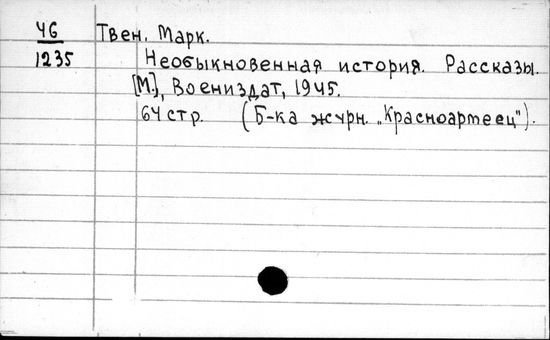 46
1235
Твен, Марк.
Необыкновенная история. Рассказы.
[М.], Воениздат, 1945.
64 стр. (Б-ка журн. „Красноармеец").